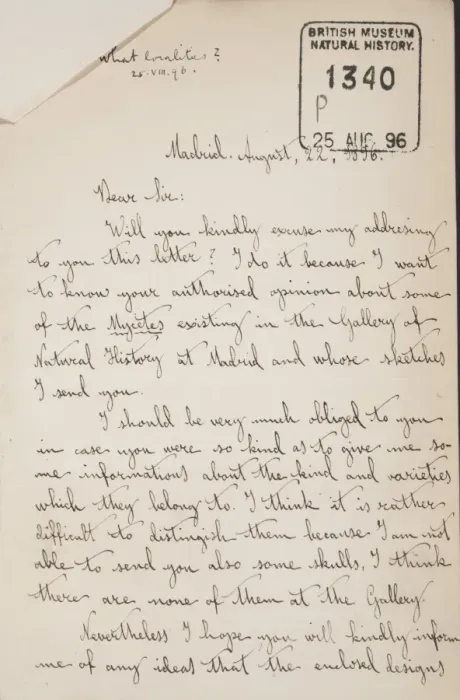 what localities?
25.VIII.96.
BRITISH MUSEUM
NATURAL HISTORY.
1340
P
25 AUG 96
Madrid. August, 22, 1896.
Dear Sir:
Will you kindly excuse my addresing
to you this letter? I do it because I want
to know your authorised opinion about some
of the Mycetes existing in the Gallery of
Natural History at Madrid and whose sketches
I send you.
I should be very much obliged to you
in case you were so kind as to give me so-
me informations about the kind and varieties
which they belong to. I think it is rather
difficult to distingish them because I am not
able to send you also some skulls, I think
there are none of them at the Gallery.
Nevertheless I hope you will kindly inform
me of any ideas that the enclosed designs